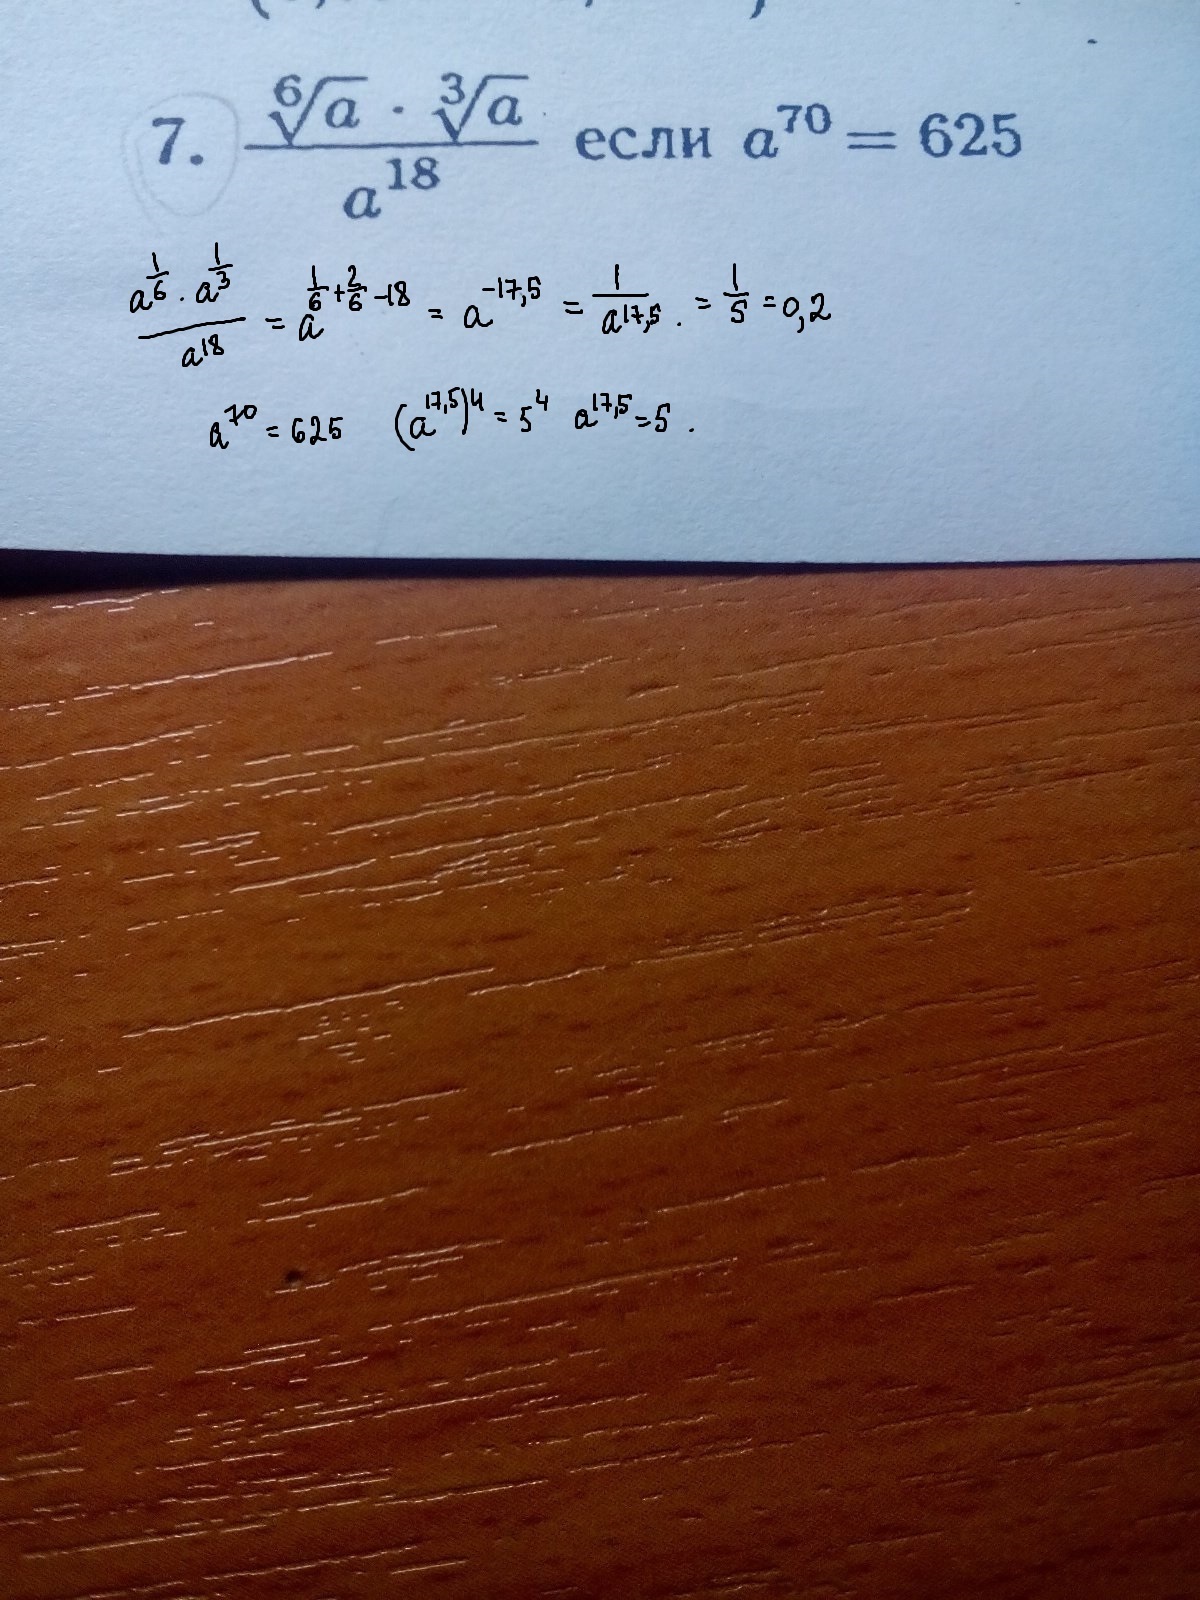 7. \frac{\sqrt[6]{a} \cdot \sqrt[3]{a}}{a^{18}} если a^{70} = 625
\frac{a^{\frac{1}{6}} \cdot a^{\frac{1}{3}}}{a^{18}} = a^{\frac{1}{6}+\frac{2}{6}-18} = a^{-17,5} = \frac{1}{a^{17,5}}. = \frac{1}{5} = 0,2
a^{70} = 625 (a^{17,5})^4 = 5^4 a^{17,5} = 5.